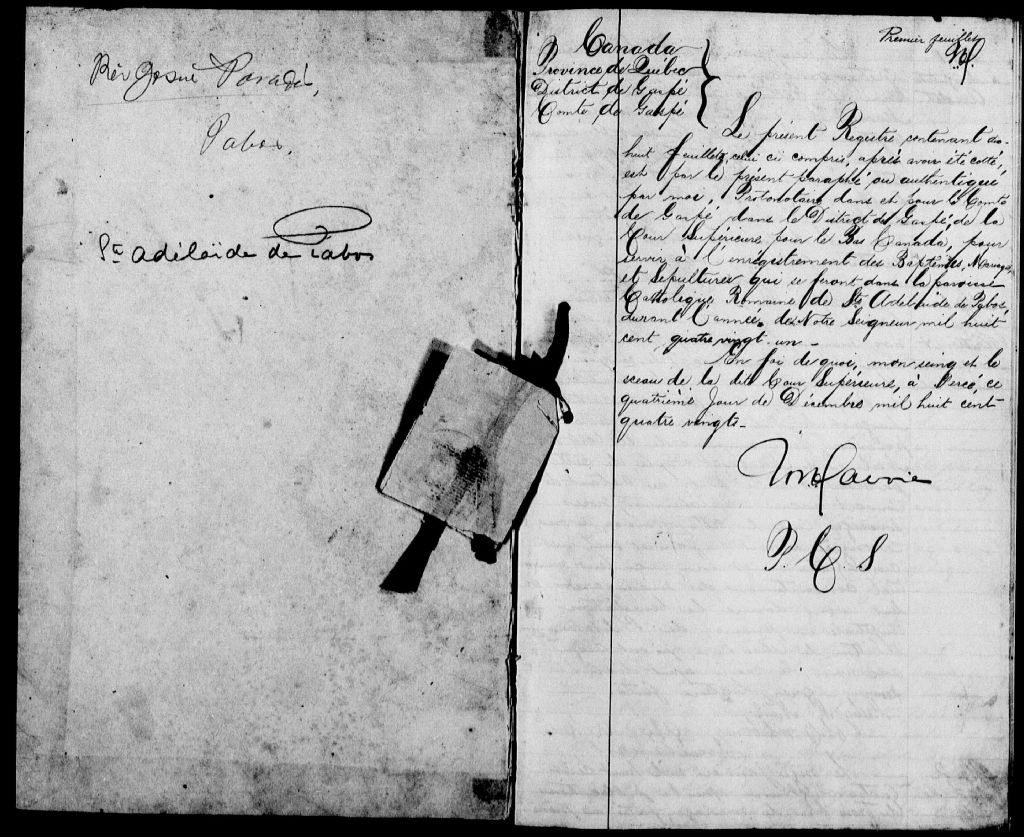 Rév Josué Paradis,
Pabos,
Ste Adélaïde de Pabos
Premier feuillet
Canada
Province de Québec
District de Gaspé
Comté de Gaspé
Le présent Registre contenant dix-
huit feuillets, celui ci compris, après avoir été cotté,
est par le présent paraphé ou authentiqué
par moi, Protonotaire dans et pour le Comté
de Gaspé, dans le District de Gaspé, de la
Cour Supérieure pour le Bas Canada, pour
servir à l'enrégistrement des Baptêmes, Mariages
et Sépultures qui se feront dans la paroisse
Catholique Romaine de Ste Adélaïde de Pabos,
durant l'année de Notre Seigneur mil huit
cent quatre vingt un -
En foi de quoi, mon seing et le
sceau de la dite Cour Supérieure, à Percé, ce
quatrième jour de Décembre mil huit cent
quatre vingts -
P. C. S